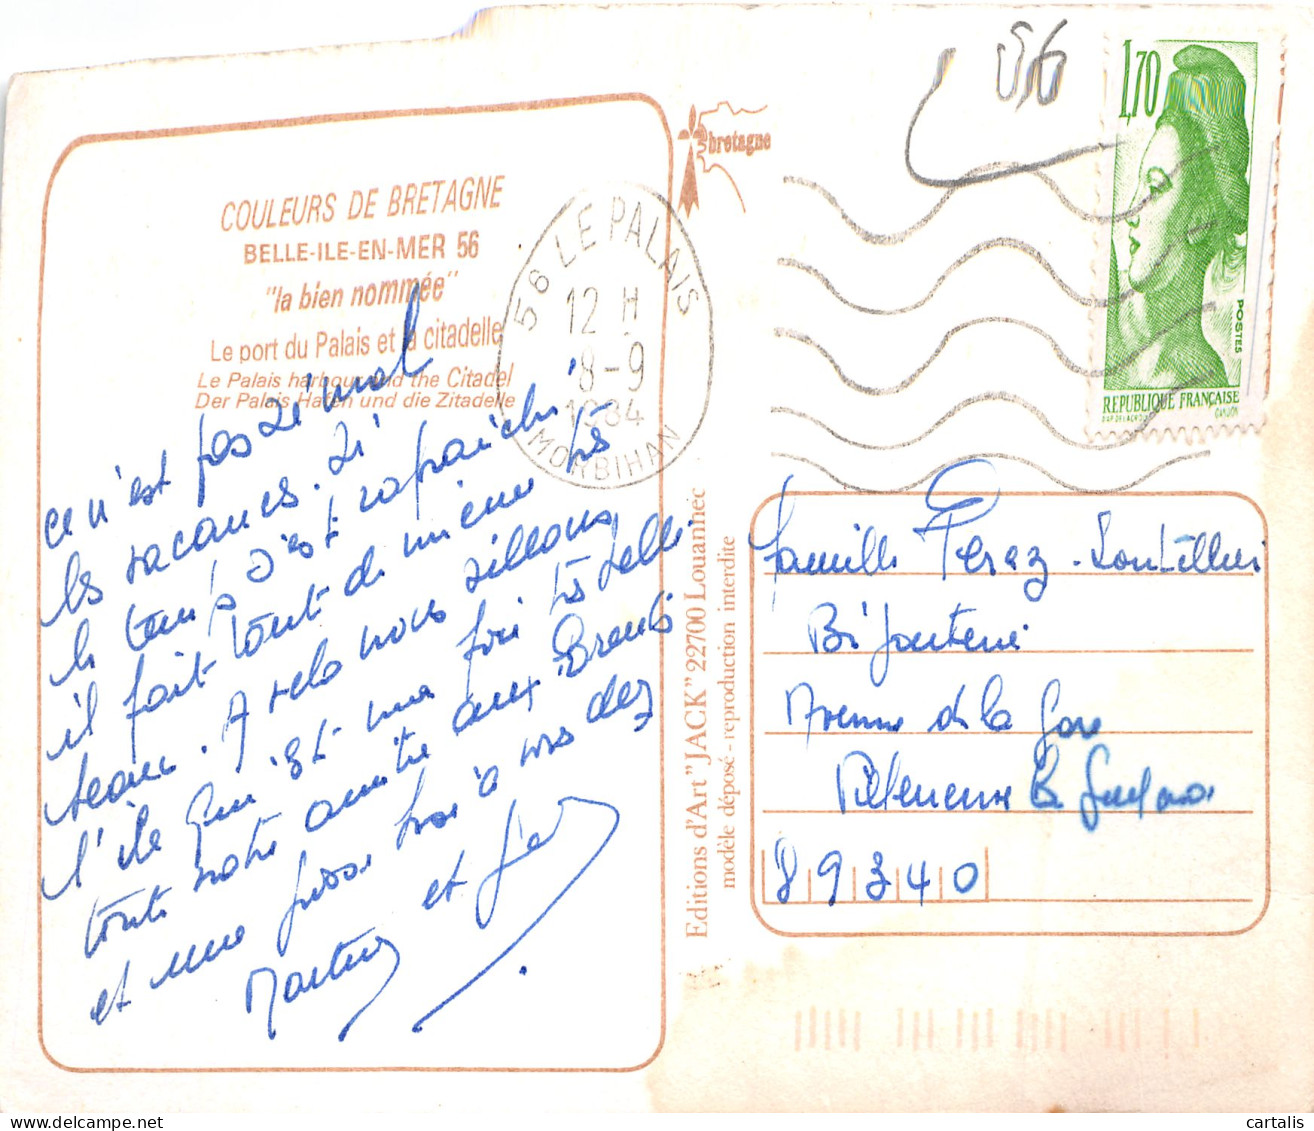 COULEURS DE BRETAGNE
BELLE-ILE-EN-MER 56
"la bien nommée"
Le port du Palais et la citadelle
Le Palais harbour and the Citadel
Der Palais Hafen und die Zitadelle
ce n'est pas si mal
les vacances. Si
le temps s'est rafraichi
il fait tout de même très
beau. A vélo nous sillons
l'île qui est ma foi très belle.
toute notre amitié aux
et une grosse bise à vous deux
Martine et
bretagne
56 LE PALAIS
12 H
8-9
1984
MORBIHAN
56
1,70
POSTES
REPUBLIQUE FRANÇAISE
D'AP. DELACROIX
GANDON
Editions d'Art "JACK" 22700 Louannec
modèle déposé - reproduction interdite
Famille Perez-
Bijouterie
Avenue de la Gare
Villeneuve la Guyard
89340